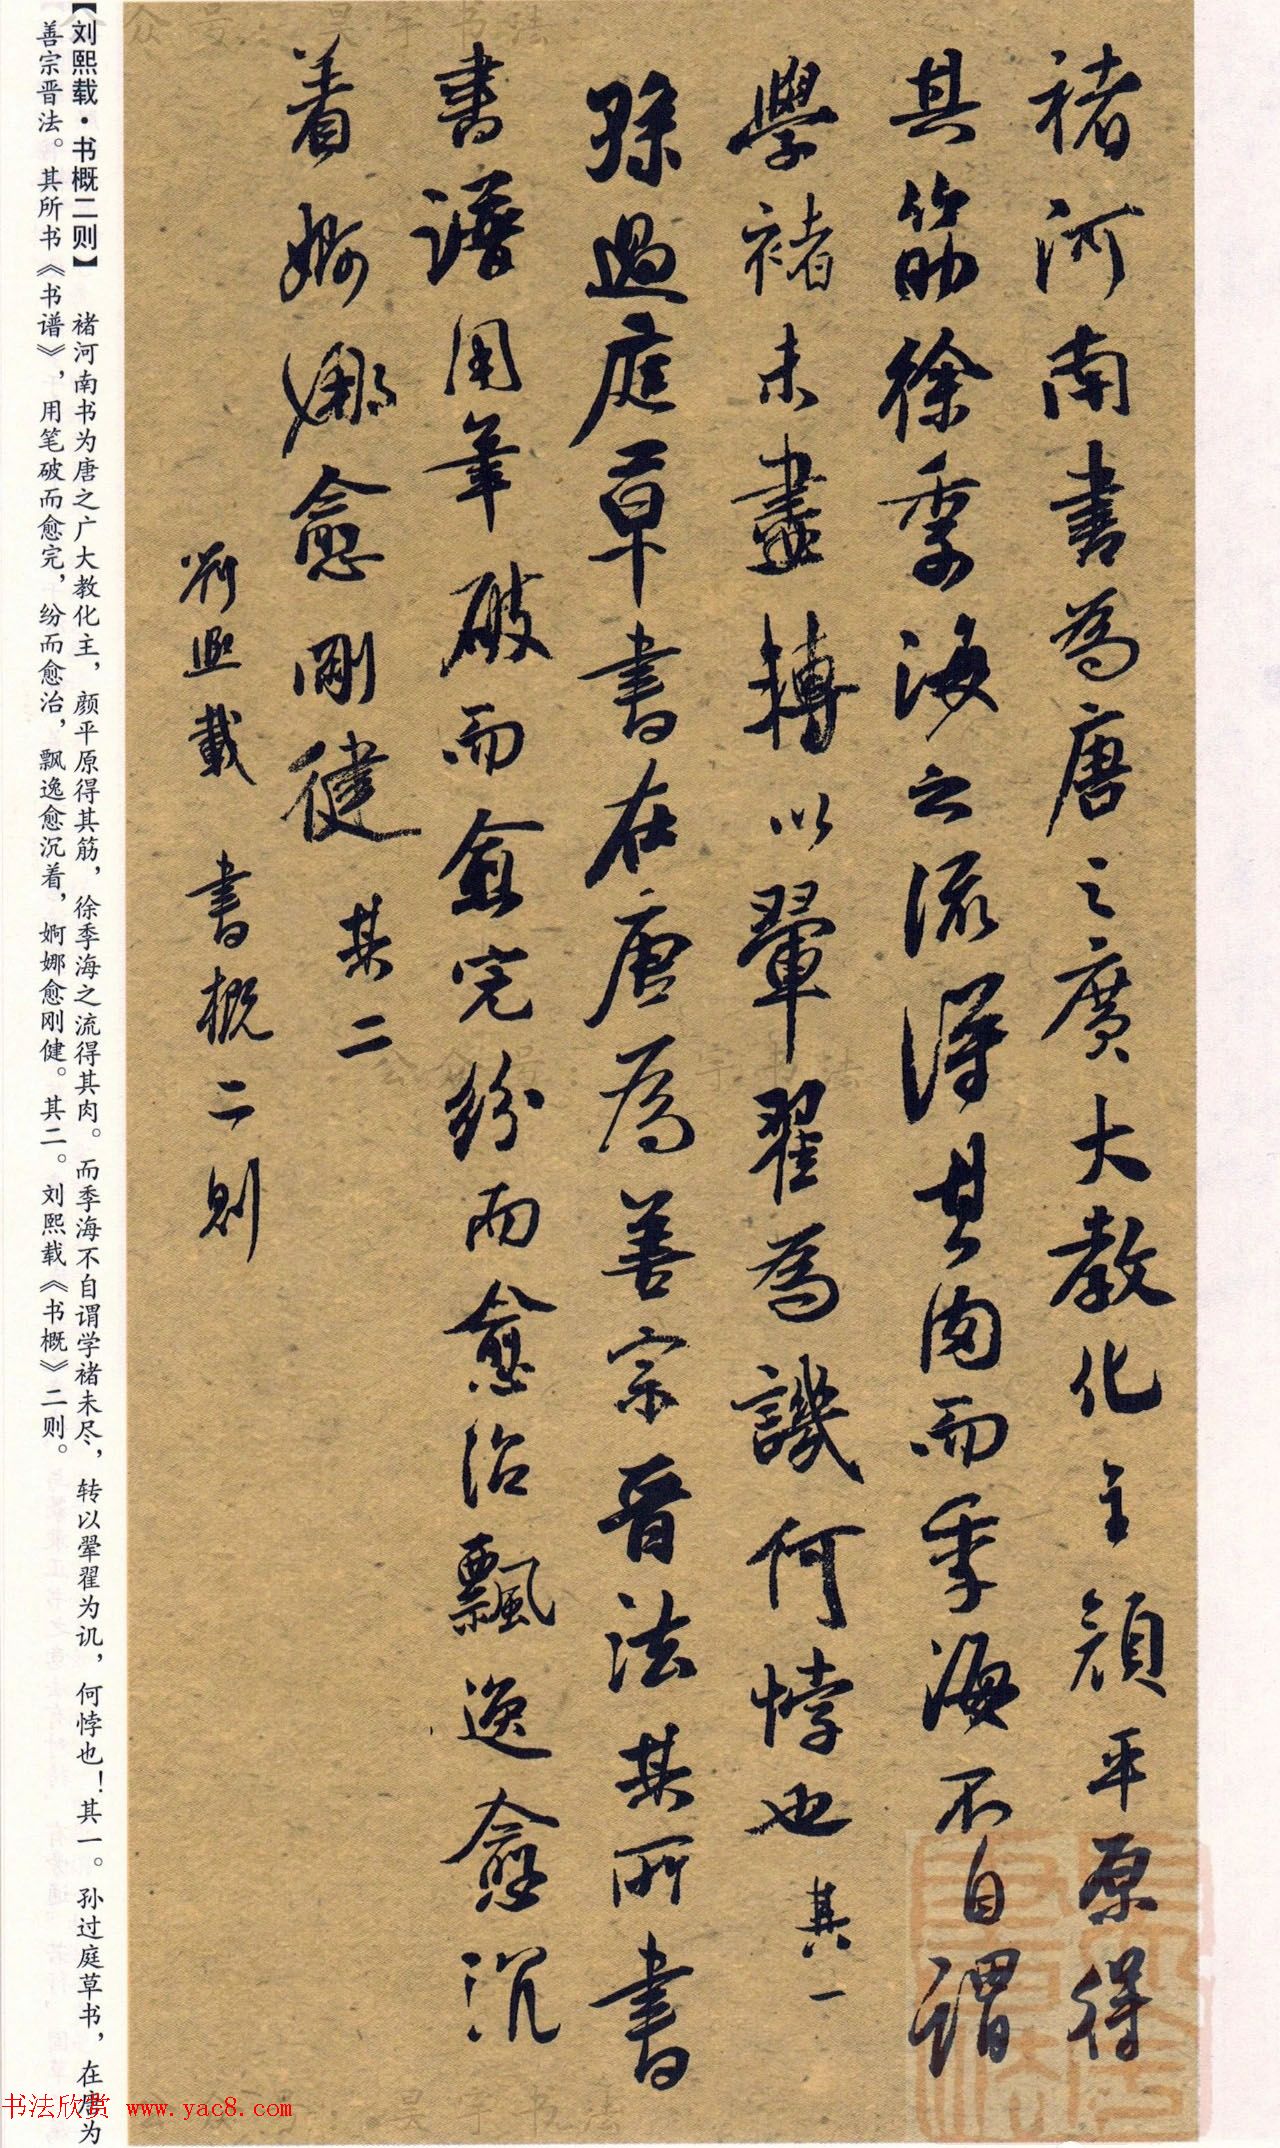 褚河南書為唐之廣大教化主顔平原得
其筋徐季海之流得其肉而季海不自謂
學褚未盡轉以翬翟為譏何悖也 其一
孫過庭草書在唐為善宗晉法其所書
書譜用筆破而愈完紛而愈治飄逸愈沉
着婀娜愈剛健 其二
劉熙載 書概二則
【刘熙载·书概二则】 褚河南书为唐之广大教化主，颜平原得其筋，徐季海之流得其肉。而季海不自谓学褚未尽，转以翚翟为讥，何悖也！其一。孙过庭草书，在唐为
善宗晋法。其所书《书谱》，用笔破而愈完，纷而愈治，飘逸愈沉着，婀娜愈刚健。其二。刘熙载《书概》二则。
书法欣赏 www.yac8.com